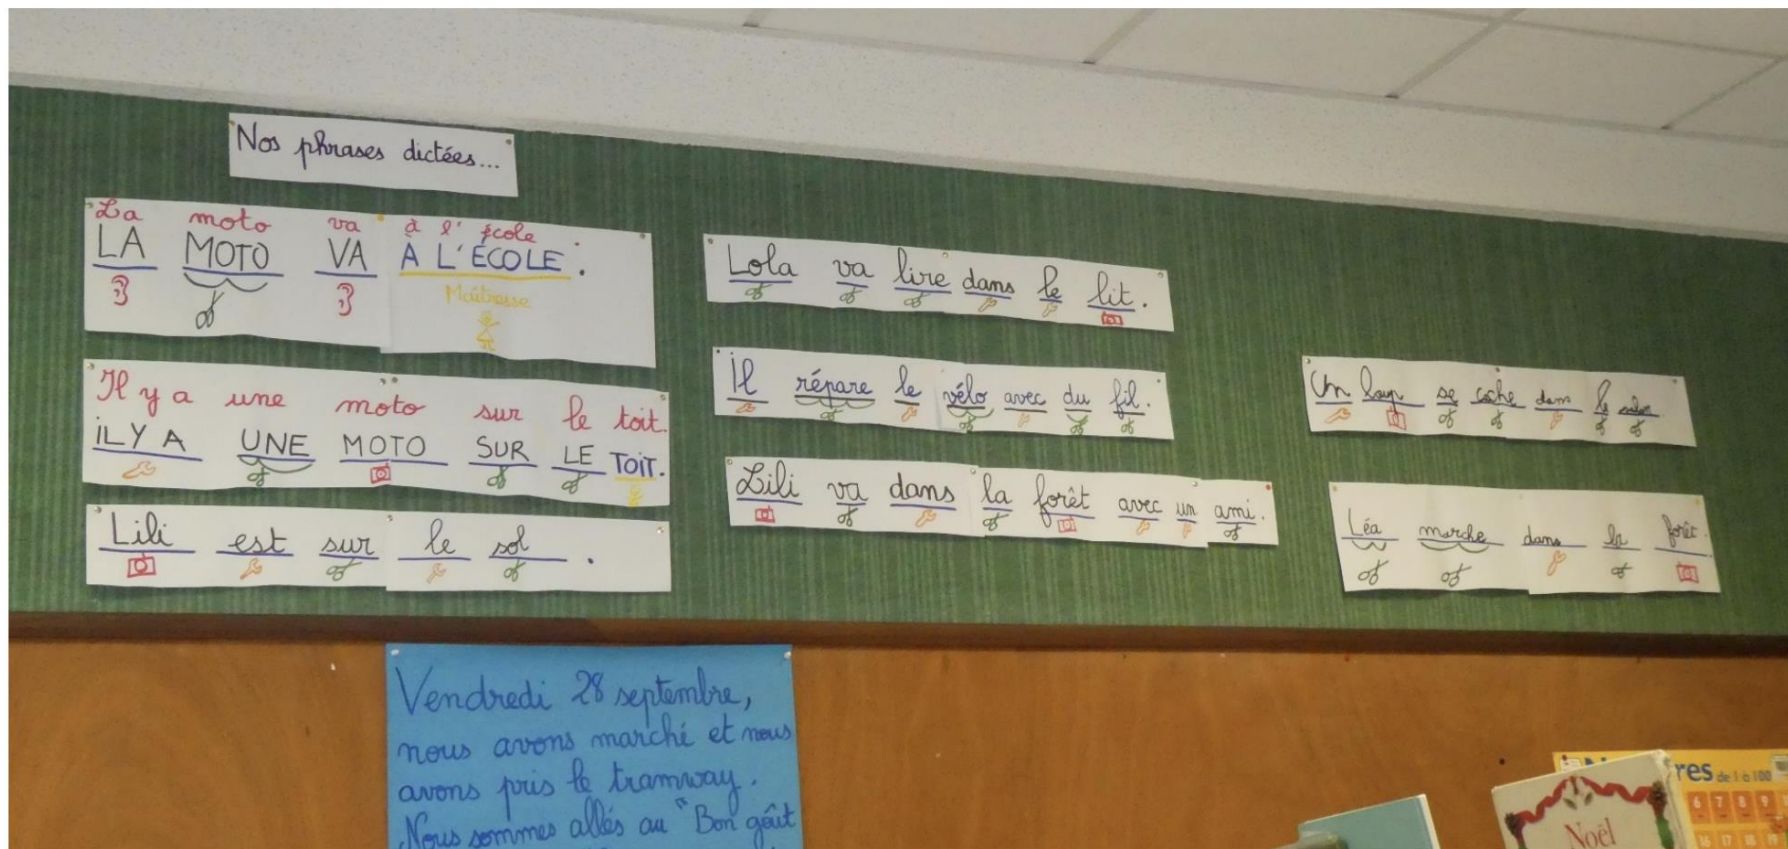 Nos phrases dictées...
La moto va à l'école.
LA MOTO VA À L'ÉCOLE.
Maîtresse
Il y a une moto sur le toit.
IL Y A UNE MOTO SUR LE TOIT.
Lili est sur le sol.
Lola va lire dans le lit.
Il répare le vélo avec du fil.
Lili va dans la forêt avec un ami.
Un loup se cache dans le
Léa marche dans la forêt.
Vendredi 28 septembre,
nous avons marché et nous
avons pris le tramway.
Nous sommes allés au "Bon goût
Noël
res de 1 à 100
6 7 8 9
16 17 18 19